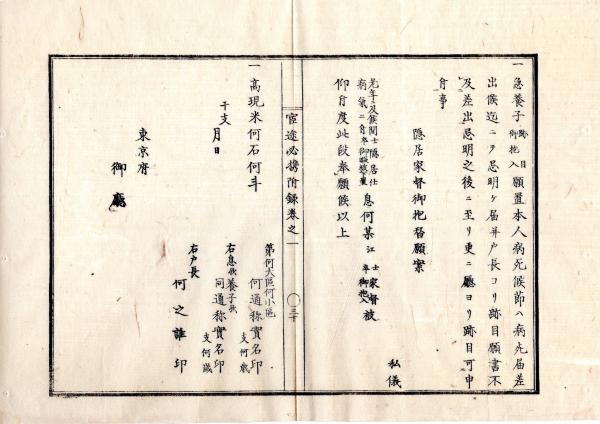 一 急養子跡目御抱入願置本人病死候節ハ病死届差
出候迄ニテ忌明ケ届并戸長ヨリ跡目願書不
及差出忌明之後ニ至リ更ニ廳ヨリ跡目可申
付事
隠居家督御抱替願案
私儀
老年ニ及候間士隠居仕
病氣ニ付卒御暇
息何某江士家督被
卒御抱
仰付度此段奉願候以上
宦途必携附録巻之一
三十
一 高現米何石何斗
第何大區何小區
何通称實名印
支何歳
右息歟養子歟
同通称實名印
支何歳
右戸長
何之誰印
干支
月日
東京府
御廳